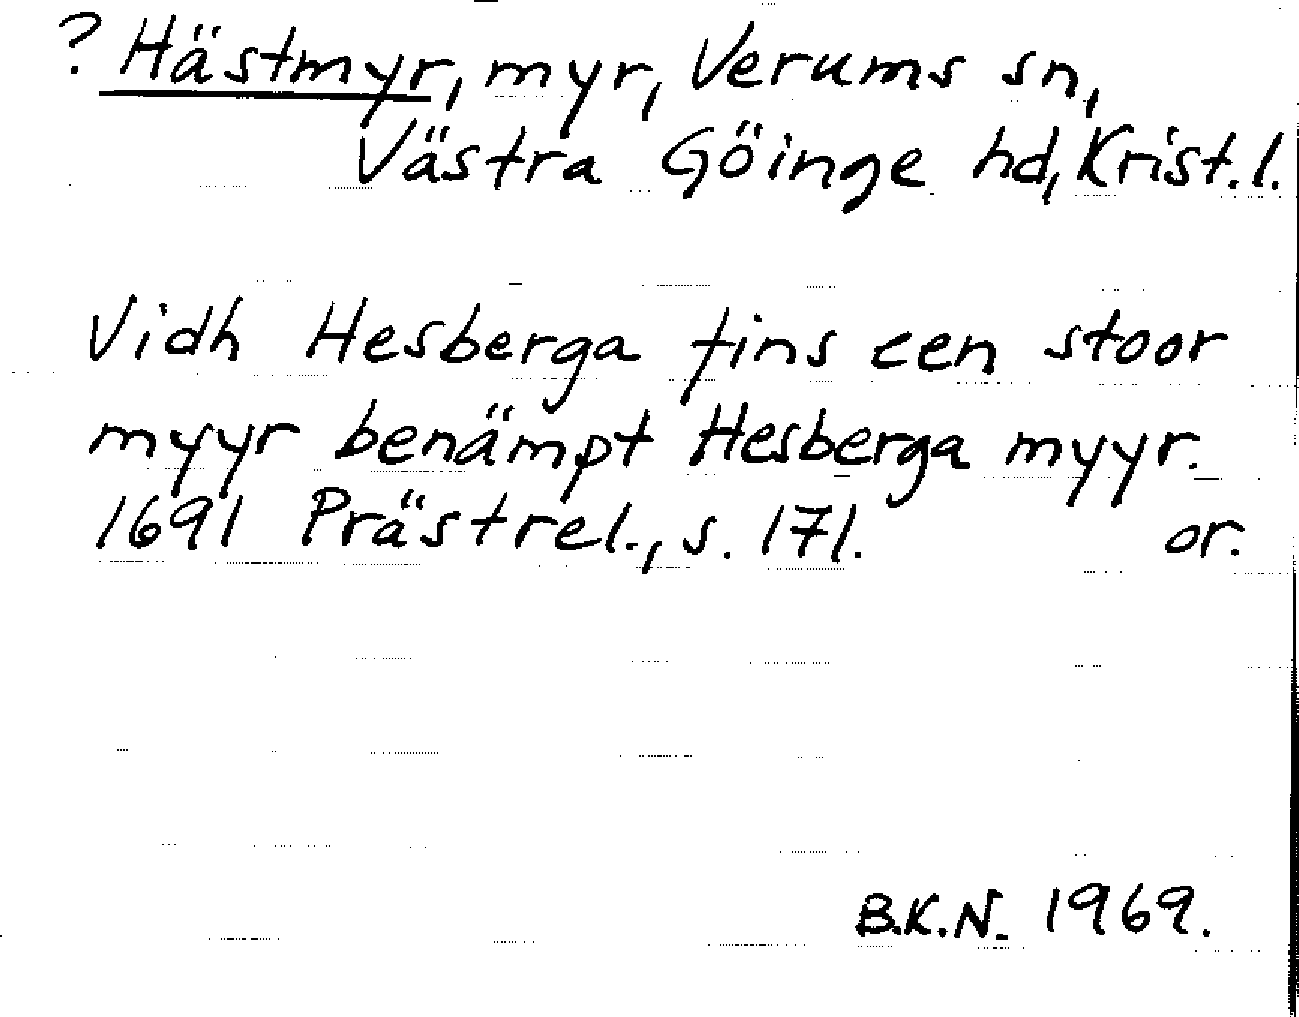 ? Hästmyr, myr, Verums sn,
Västra Göinge hd, Krist.l.
Vidh Hesberga fins een stoor
myyr benämpt Hesberga myyr.
1691 Prästrel., s. 171. or.
B.K.N. 1969.